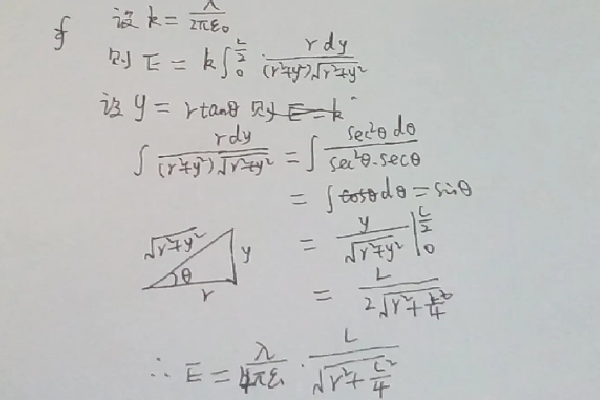 设 k = λ/2πε₀
则 E = k∫₀^(L/2) r dy/((r²+y²)√(r²+y²))
设 y = r tanθ 则 E = k
∫ r dy/((r²+y²)√(r²+y²)) = ∫ sec²θ dθ/(sec²θ·secθ)
= ∫ cosθ dθ = sinθ
√(r²+y²) y θ r = y/√(r²+y²) |₀^(L/2)
= L/(2√(r²+L²/4))
∴ E = λ/4πε₀ · L/√(r²+L²/4)